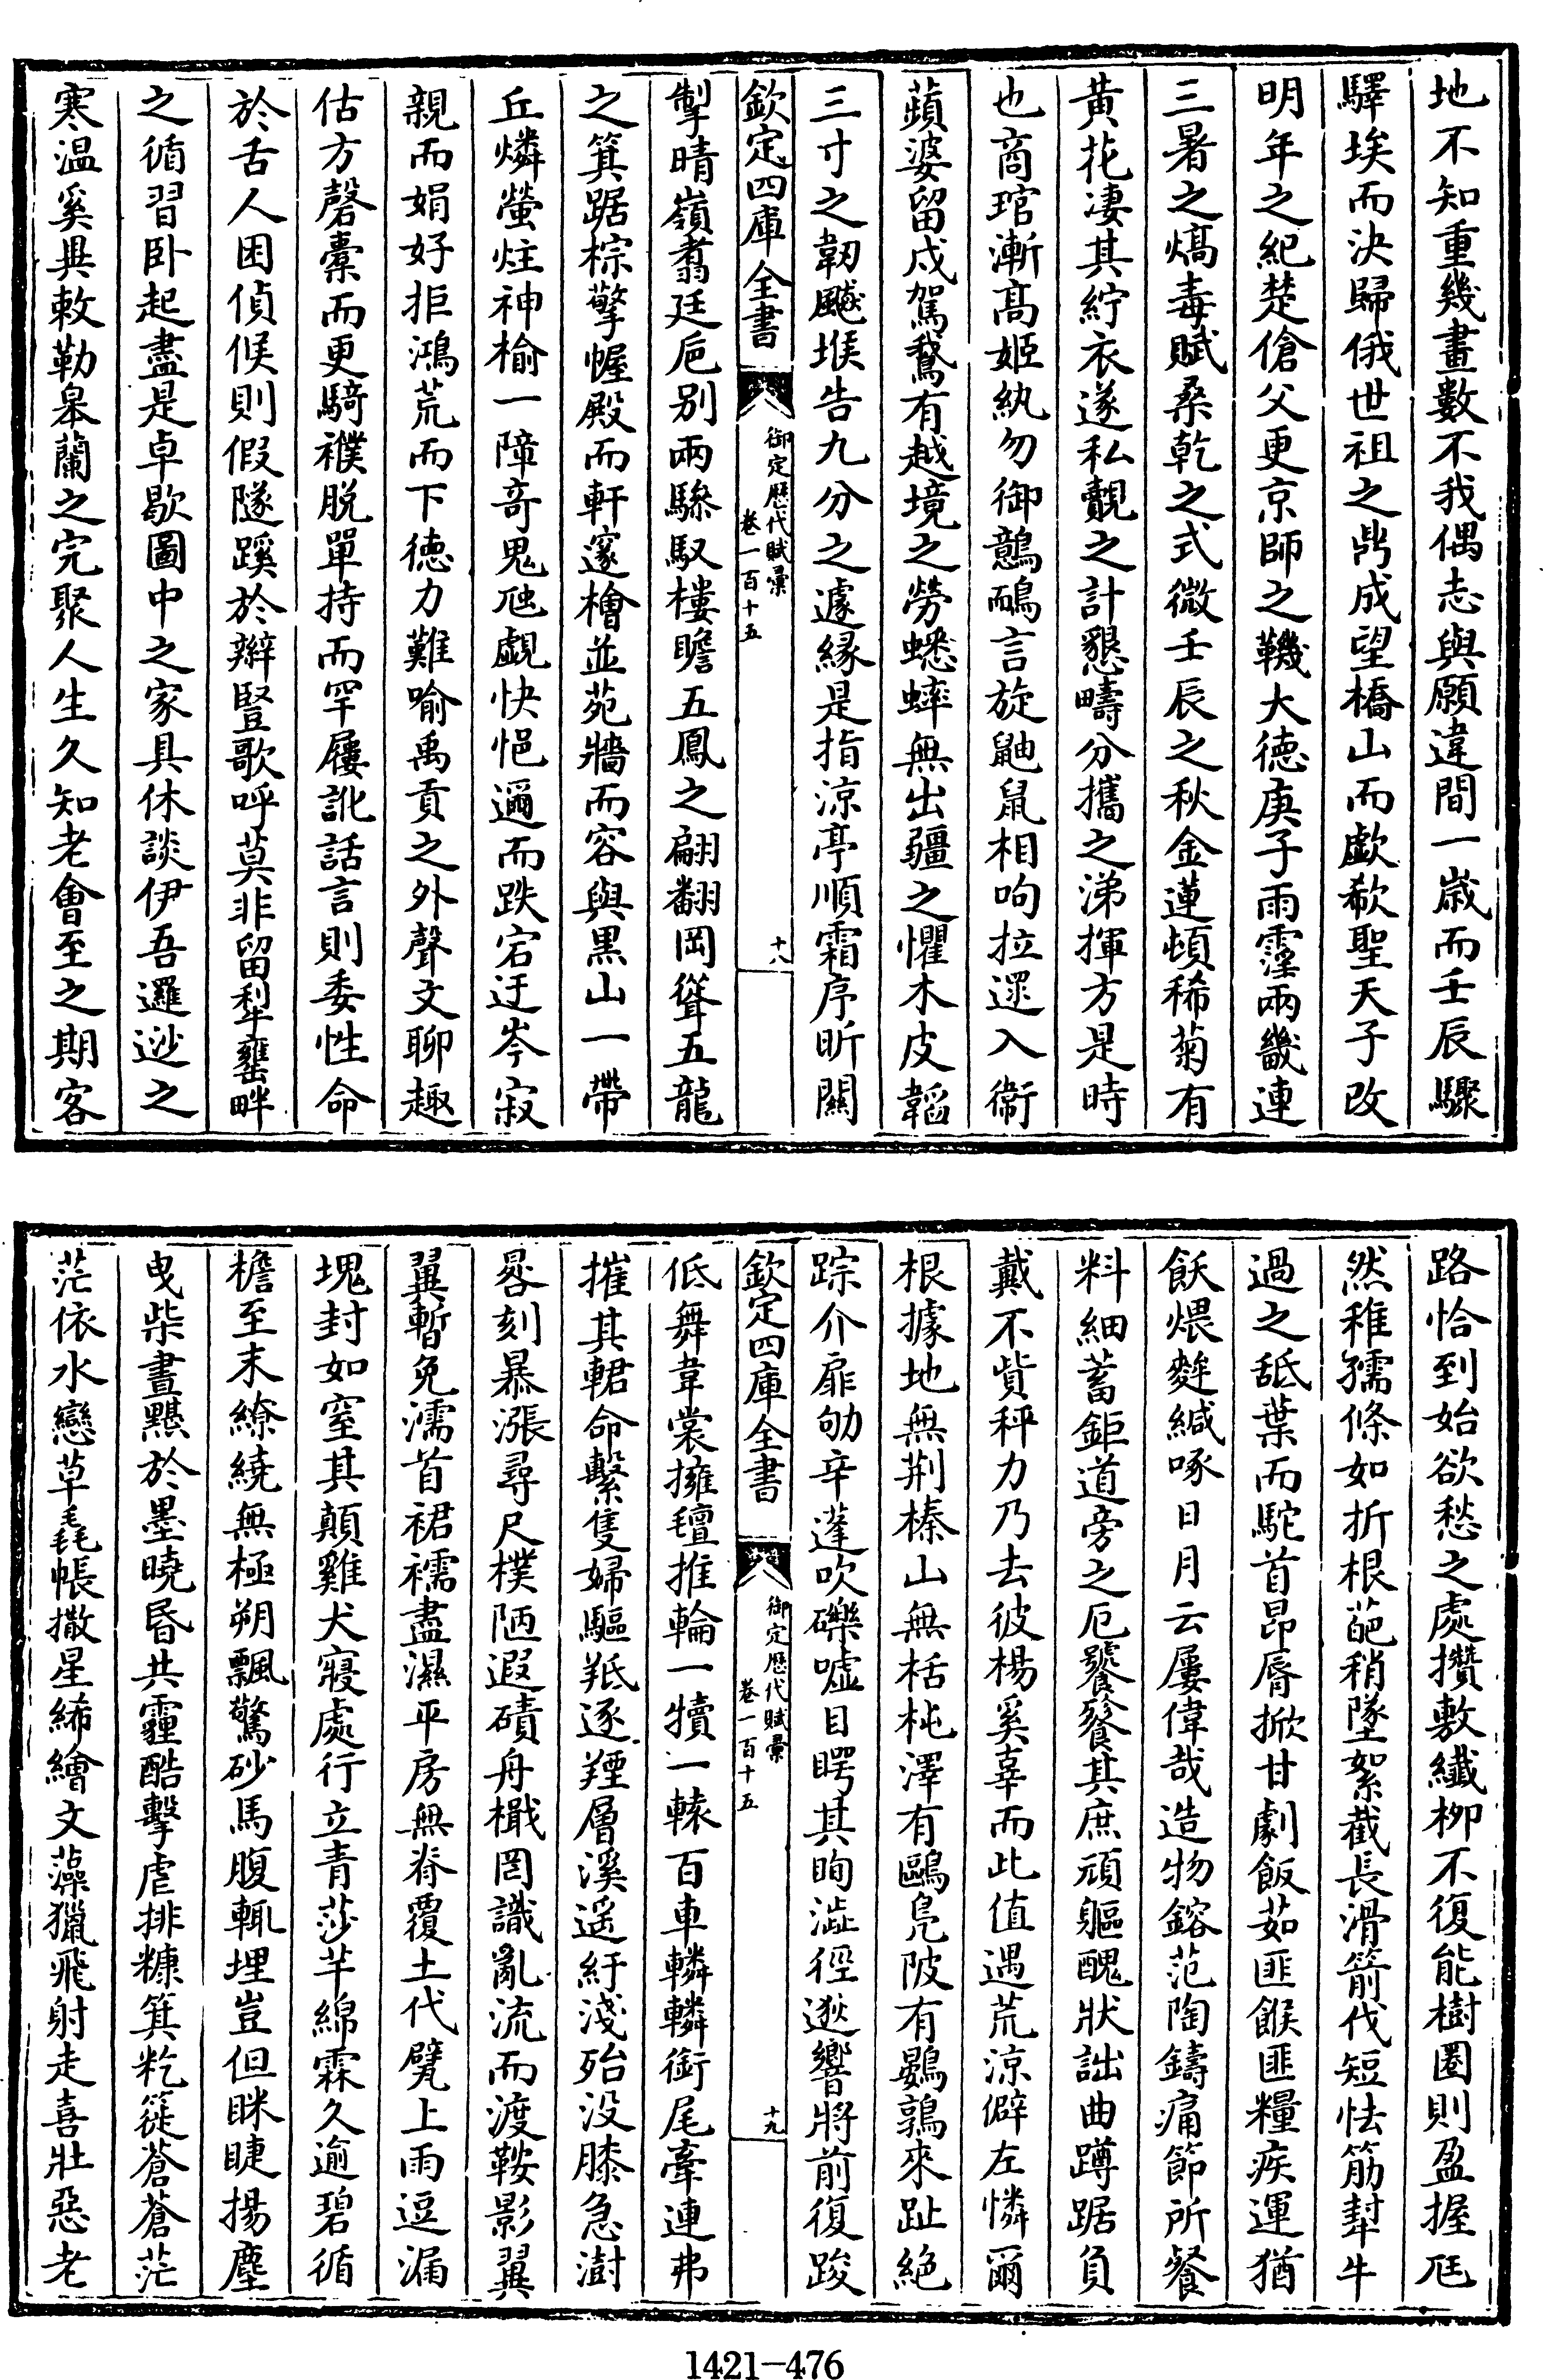 地不知重幾晝數不我偶志與願違間一嵗而壬辰驟
驛埃而決歸俄世祖之鼎成望橋山而歔欷聖天子改
明年之紀楚傖父更京師之鞿大德庚子雨霪兩畿連
三暑之熇毒賦桑乾之式微壬辰之秋金蓮頓稀菊有
黄花凄其紵衣遂私覿之計懇疇分攜之涕揮方是時
也商琯漸髙姬紈勿御鷾鴯言旋鼬鼠相呴拉遝入衞
蘋婆留戍駕鵞有越境之勞蟋蟀無出疆之懼木皮韜
三寸之韌飈堠告九分之遽縁是指涼亭順霜序昕闗
欽定四庫全書
御定歴代賦彚
卷一百十五
十八
掣晴嶺翥廷巵别兩驂馭樓瞻五鳳之翩翻岡聳五龍
之箕踞棕擎幄殿而軒邃檜並苑牆而容與黒山一帶
丘燐螢炷神榆一障竒鬼虺觑快悒邇而跌宕迂岑寂
親而娟好拒鴻荒而下德力難喻禹貢之外聲文聊趣
估方罄橐而更騎襆脱單持而罕屨訛話言則委性命
於舌人困偵候則假隧蹊於辮豎歌呼莫非留犁罋畔
之循習卧起盡是卓歇圖中之家具休談伊吾邏逤之
寒温奚與敕勒皋蘭之完聚人生久知老會至之期客
路恰到始欲愁之處攢敷纎柳不復能樹圏則盈握尫
然稚孺條如折根葩稍墜絮截長滑箭伐短怯筋犎牛
過之舐葉而駝首昂脣掀甘劇飯茹匪餱匪糧疾運猶
飫煨麰緘啄日月云屢偉哉造物鎔范陶鑄痛節所餐
料細蓄鉅道旁之厄饕餮其庶頑軀醜狀詘曲蹲踞負
戴不貲秤力乃去彼楊奚辜而此值遇荒涼僻左憐爾
根據地無荆榛山無栝杶澤有鷗鳬陂有鷃鶉來趾絶
踪介扉劬辛蓬吹礫噓目睜其眴澁徑逖響將前復踆
欽定四庫全書
御定歴代賦彚
卷一百十五
十九
低舞韋裳擁氊推輪一犢一轅百車轔轔銜尾牽連弗
摧其輑命繫隻婦驅羝逐羶層溪遥紆淺殆没膝急澍
晷刻暴漲尋尺樸陋遐磧舟檝罔識亂流而渡鞍影翼
翼暫免濡首裙襦盡濕平房無脊覆土代甓上雨逗漏
塊封如窒其顛雞犬寢處行立青莎芊綿霖久逾碧循
檐至末繚繞無極朔飄驚砂馬腹輒埋豈但眯睫揚塵
曳柴晝黮於墨曉昏共霾酷擊虐排糠箕籺簁蒼蒼茫
茫依水戀草毳帳撒星絺繪文藻獵飛射走喜壯惡老
1421-476